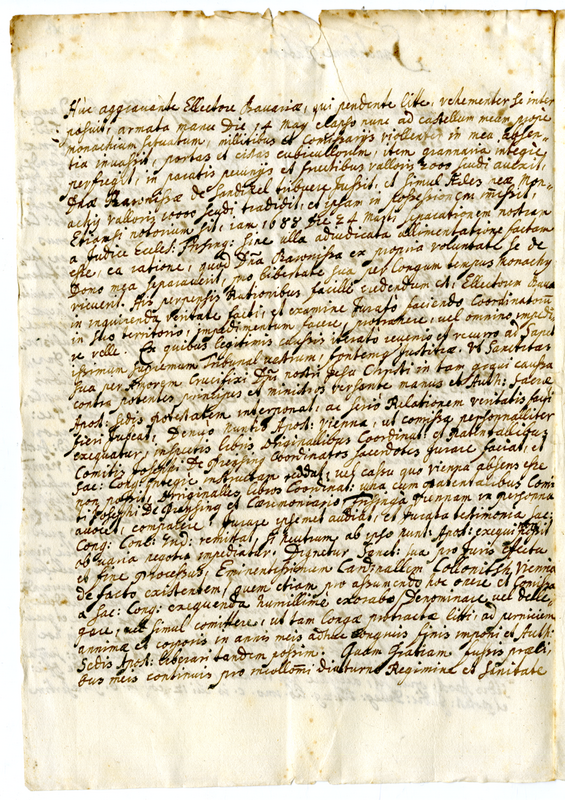 Huc aggravante Ellectore Bavariæ, qui pendente litte, vehementer se inter
posuit, armata manu die 14 May elapso nunc ad castellum meum prope
monachium situatum, militibus et Contrarys violenter in mea absen-
tia invassit, portas et cistas cubicullorum, item grannaria integre
perfregit, in paratis pecunys et fructibus valloris 2000 scudi avexit,
Dnæ Baronissæ de Sandizel tribuere iussit, et simul Ædes meæ Mon-
actys valloris 10000 scudi, tradidit, et ipsam in possessionem immissit,
Etiamsi notorium sit, iam 1688 die 24 Maji separationem nostram
a Judice Eccles: Frising: sine ulla adiudicata allimentatione factam
esse, ea ratione, quod Dna Baronissa ex propria voluntate se de
Domo mea separaverit, imo libertate sua per longum tempus Monachy
vixerit. His perpensis Rationibus facille evidendum est, Ellectorem Bava
in inquirenda veritate facti, et examine Jurato faciendo Coordinatorum
in suo territorio, impedimentum facere, protrahere, vel omnino impedi
re velle. Ex quibus legitimis caussis iterato revenio et recurro ad Sanct
issimum supremum Tribunal vestrum, fontem justitiæ. Ut Sanctitas
sua per Amorem Crucifixi Dni nostri Jesu Christi in tam gravi caussa
contra potentes principes et ministros versante manus et Auth: Sacræ
Apost: Sedis potestatem interponat, ac serio Relationem veritatis facti
fieri iubeat, Denuo Nuntio Apost: Viennæ, ut comissa personnalliter
exequatur, inspectis libris Originalibus Coordinat: et Patentallibus
Comitis Josephi: De Preising Coordinatos sacerdotes iurare faciat, et
Sac: Congr: integre instructam reddat, vel casu quo vienna absens esse
non possit, Originalles libros Coordinat: una cum patentalibus Comi
ti Josephi: De Preising et Cæremoniariis Frisinga Viennam in personna
avocet, comparere, Jurare ipsemet audiat, et Jurata testimonia sac:
Cong: Conc: Ind: remittat, si neutrum ab ipso nunt: Apost: exequi possit
ob varia negotia impediatur. Dignetur Sanct: sua pro Jurio Effectu
et fine processus, Eminentissimum Cardinallem Collonitsch, Viennæ
de facto existentem, quem etiam pro assumendo hoc onere et Comissa
a sac: Cong: exequenda humillime exorabo, Denominare, vel delle-
gare, vel simul comittere, ut tam longæ protractæ litti, ad perniciem
annimæ et corporis in annis meis adhuc longævis finis imponi et Auth:
Sedis Apost: liberari tandem possim. Quam Gratiam iussis præli-
bus meis continuis pro incollomi, diuturno Regimine et Sanitate